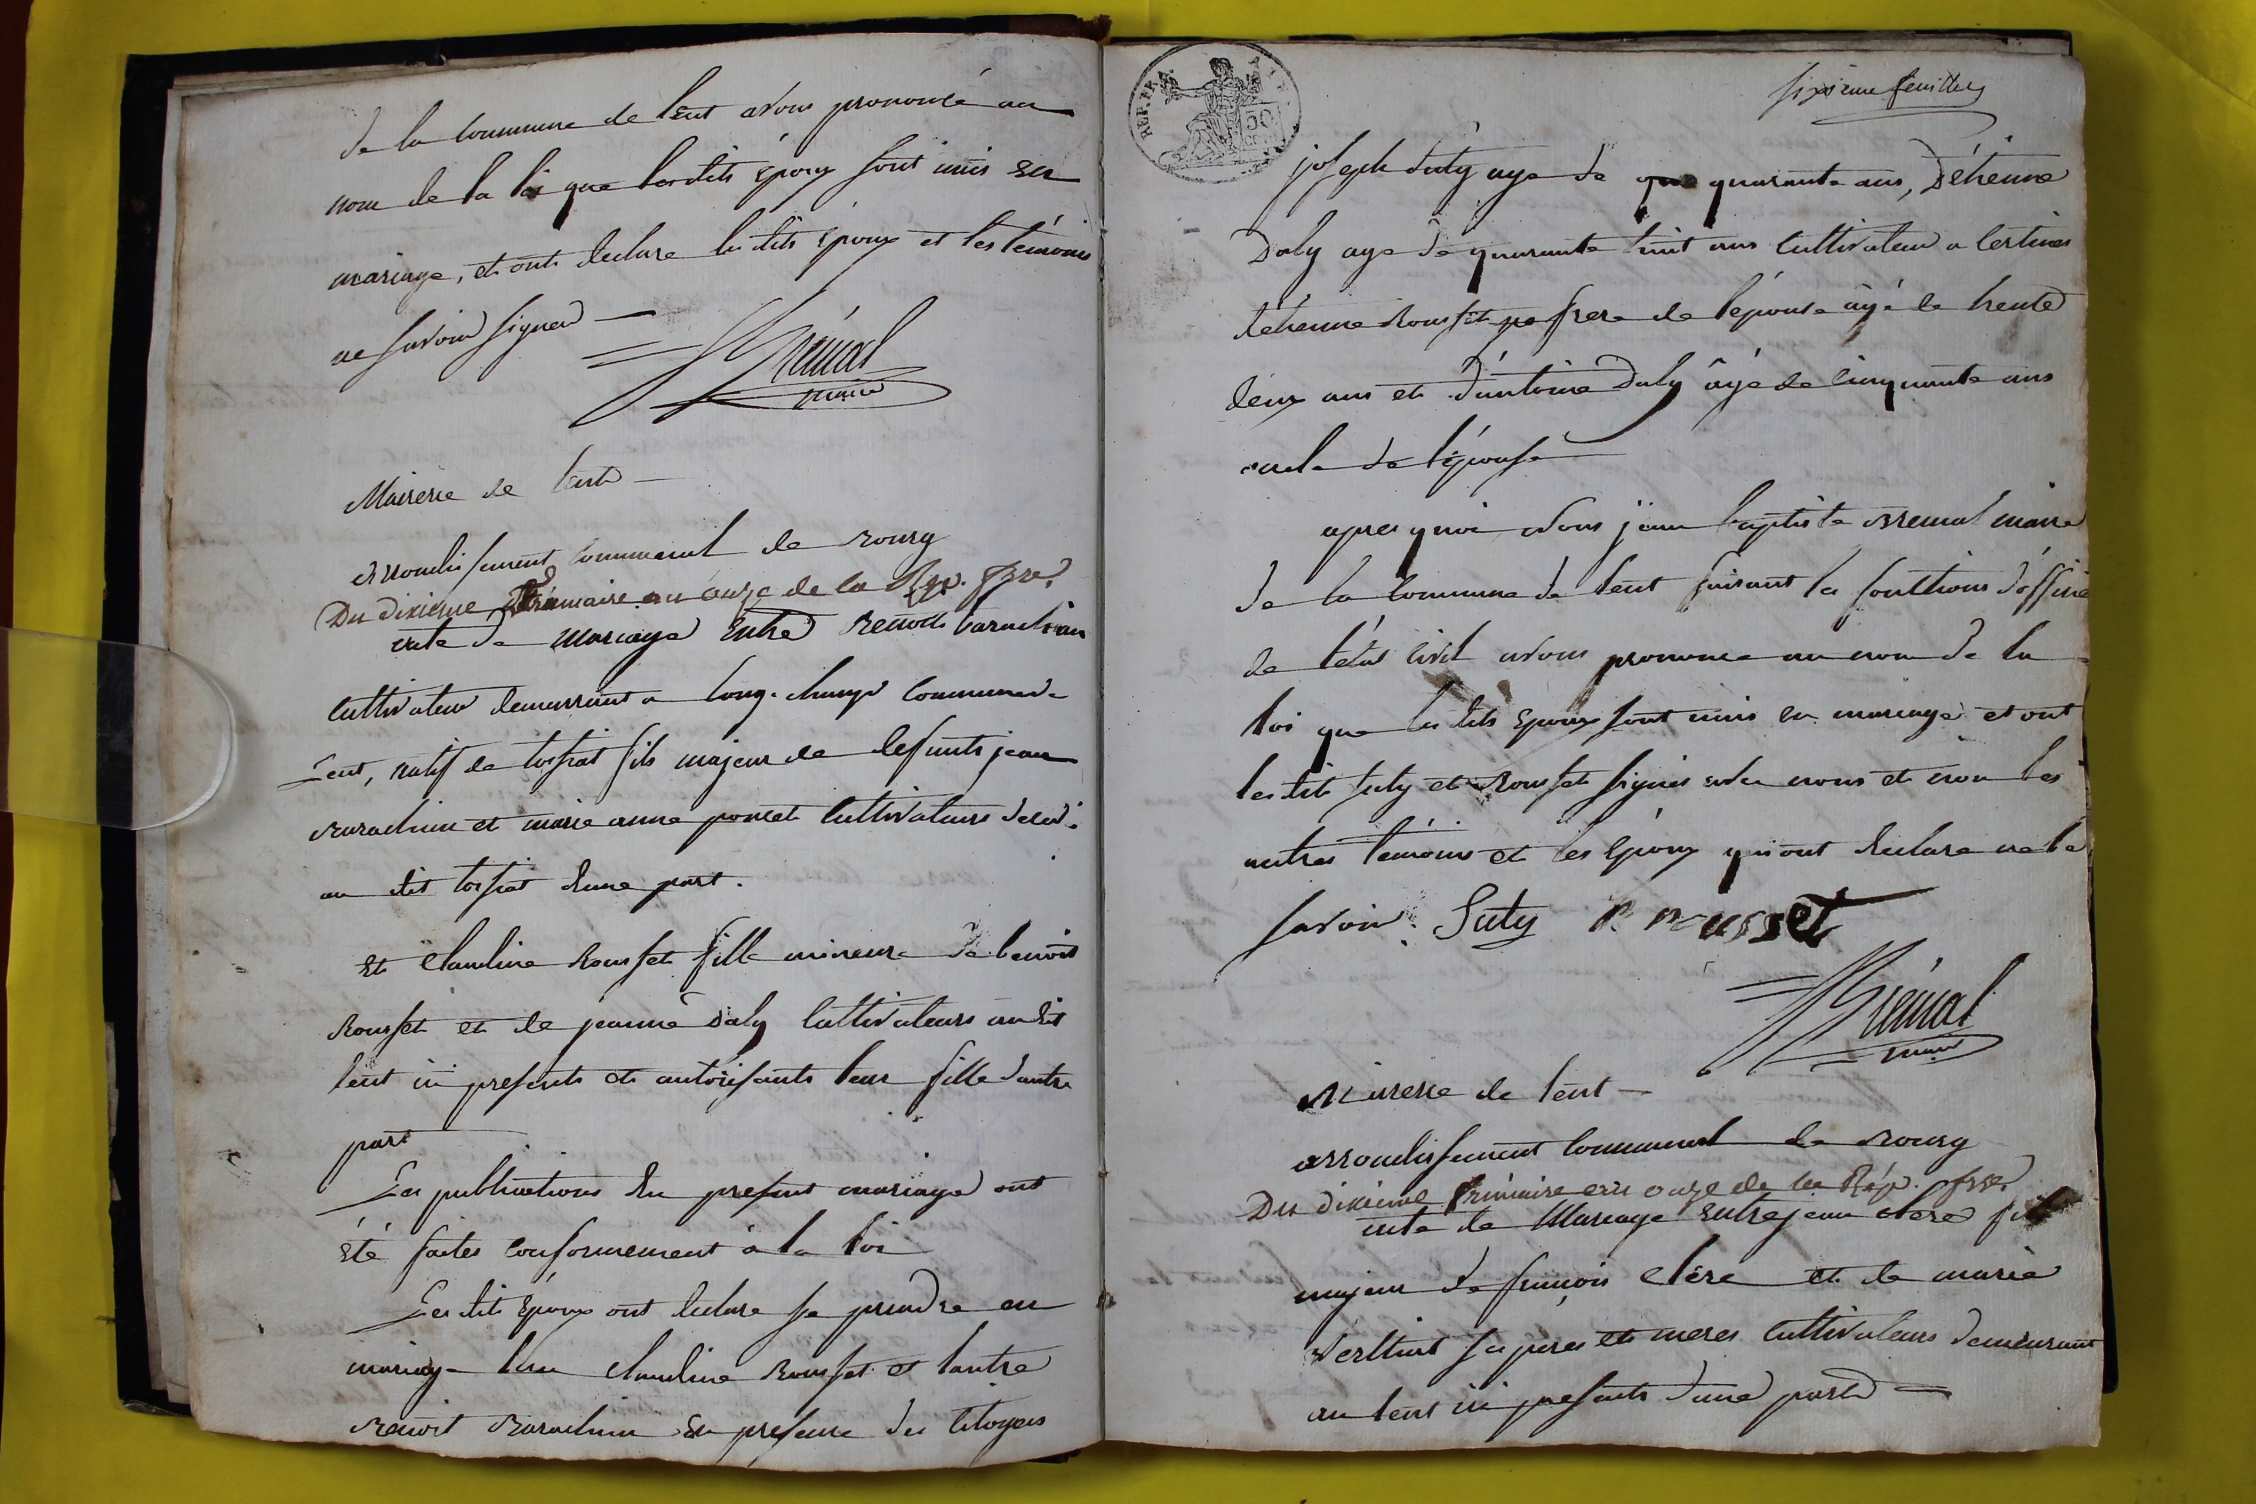 de la Commune de lent avons prononcé au
nom de la loi que lesdits époux sont unis en
mariage, et ont declare les dits époux et les témoins
ne savoir signer
Brémal
maire
Mairerie de lent
arrondissement Communal de Bourg
Du dixieme frimaire an onze de la Rép. frse.
acte de Mariage Entre Benoit
Cultivateur demeurrant a long-champ commune de
Lent, natif de tossiat fils majeur de defunts jean
et marie anne poncet Cultivateurs
au dit tossiat dune part.
Et Claudine Rousset fille mineure de benoit
Rousset et de jeanne Daly Cultivateurs au dit
lent ici presents et autorisants leur fille dautre
part
Les publications du present mariage ont
été faites conformement à la loi
Les dit époux ont declare se prendre en
mariage lun Claudine Rousset et lautre
Benoit en presence des Citoyens
REP. FRA. 50
sixieme feuillet
joseph Suty age de quarante ans, D'étienne
Daly age de quarante huit ans Cultivateur a Certines
détienne Rousset frere de l'épouse âgé de trente
deux ans et d'antoine Daly âgé de cinquante ans
oncle de l'épouse
apres quoi Nous jean baptiste Bremal maire
de la Commune de lent faisant les fonctions d'officier
de l'état civil avons prononcé au nom de la
loi que les dits époux sont unis en mariage et ont
les dits Suty et Rousset signés avec nous et non les
autres témoins et les époux qui ont declare ne le
savoir. Suty Rousset
Brémal
maire
Mairerie de lent
arrondissement Communal de Bourg
Du dixieme frimaire an onze de la Rép. frse.
acte de Mariage Entre jean Clere fils
majeur de françois Clere et de marie
ses peres et meres Cultivateurs demeurant
au lent ici presents d'une part